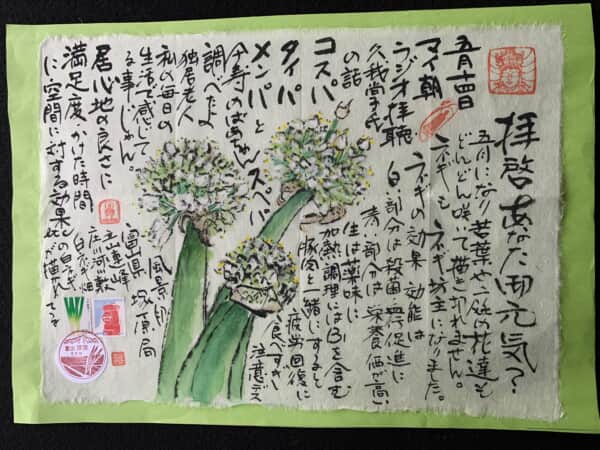 拝啓あなた御元気?
五月になり若葉や一般の花達も
どんどん咲いて描き切れません。
ネギもネギ坊主になりました。
ネギの効果 効能は
白い部分は殺菌
青い部分は栄養価が高い
生は薬味に
加熱調理にはB1を含む
豚肉と一緒にすると
疲労回復に
食べすぎ
注意デス
五月十四日
マイ朝
ラジオ拝聴
久我尚子氏
の話
コスパ
タイパ
メンパとスペパ
のばあちゃん
調べたよ
独居老人
私の毎日の
生活で感じて
る事じゃん。
居心地の良さに
満足度、かけた時間
に空間に対する効果
富山県 塚原局
風景印
立山連峰
庄川河川敷
白ネギ畑